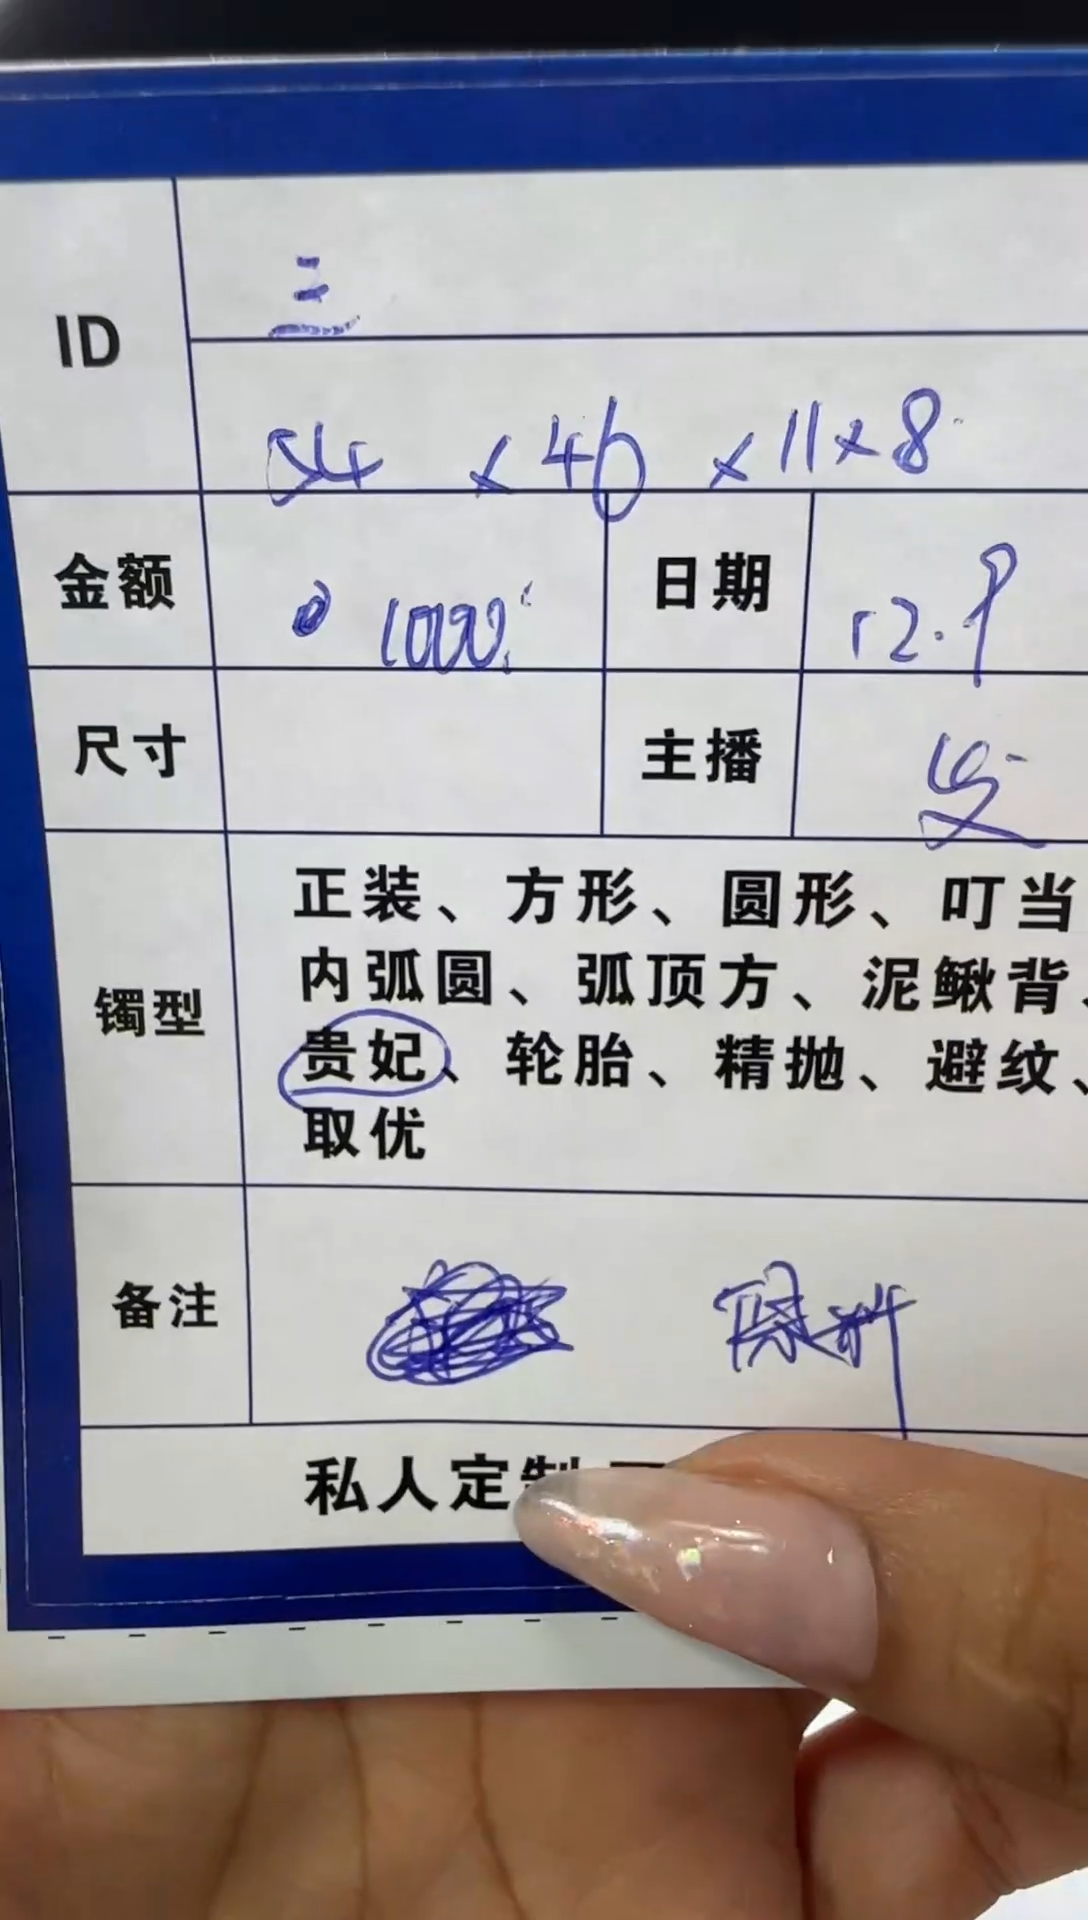 ID 三
54 × 46 × 11 × 8
金额 1000 日期 12.9
尺寸 主播
镯型 正装、方形、圆形、叮当
内弧圆、弧顶方、泥鳅背、
贵妃、轮胎、精抛、避纹、
取优
备注
私人定制